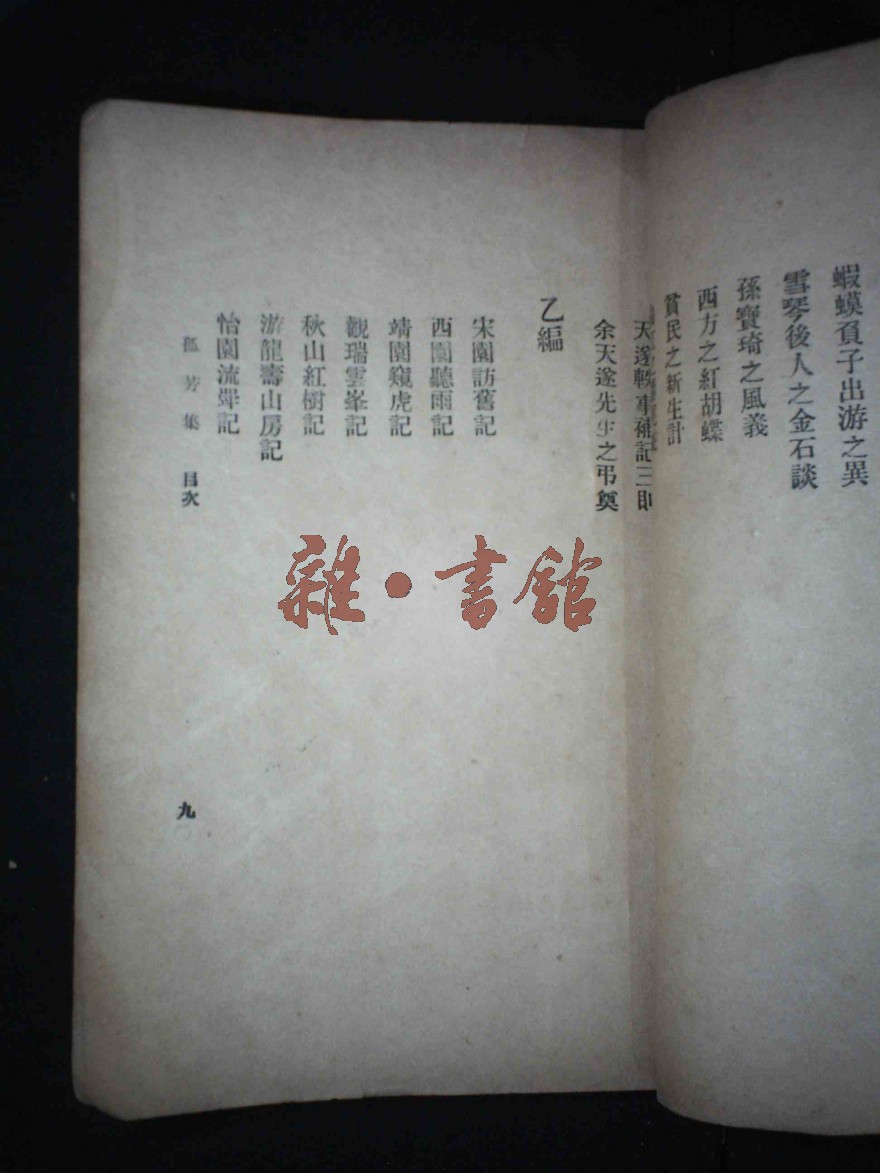 蝦蟆負子出游之異
雪琴後人之金石談
孫寶琦之風義
西方之紅胡蝶
貧民之新生計
天遂軼事補記三則
余天遂先生之弔奠
乙編
宋園訪舊記
西園聽雨記
靖園窺虎記
觀瑞雲峯記
秋山紅樹記
游龍壽山房記
怡園流觴記
孤芳集 目次
九
雜·書館